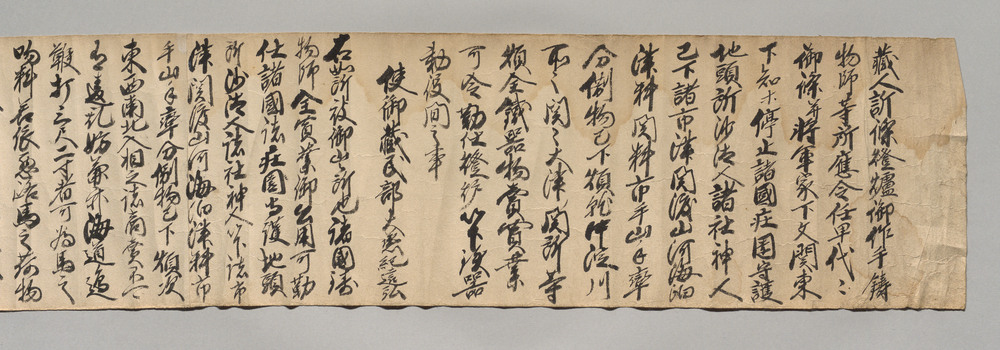 藏人所牒燈爐御作手鑄
物師等所應令任早代々
御牒并將軍家下文関東
下知等停止諸國庄園守護
地頭所沙汰人諸社神人
已下諸市津関渡山河海泊
津料関料市手山手率
分例物已下煩就中淀川
所々関々大津関所等
煩全鐵器物賣買業
可令勤仕燈炉以下鐵器
勤役間之事
使御藏民部大丞紀
右當所被御山所也諸國鋳
物師全賣買業御公用可勤
仕諸國諸庄園守護地頭
所沙汰人諸社神人以下諸市
津関渡山河海泊津料市
手山手率分例物已下煩次
東西南北入相之諸商賣不可
有違乱妨兼亦海道邊
鞭打三尺二寸者可為馬之
吻料若依悪路馬之荷物